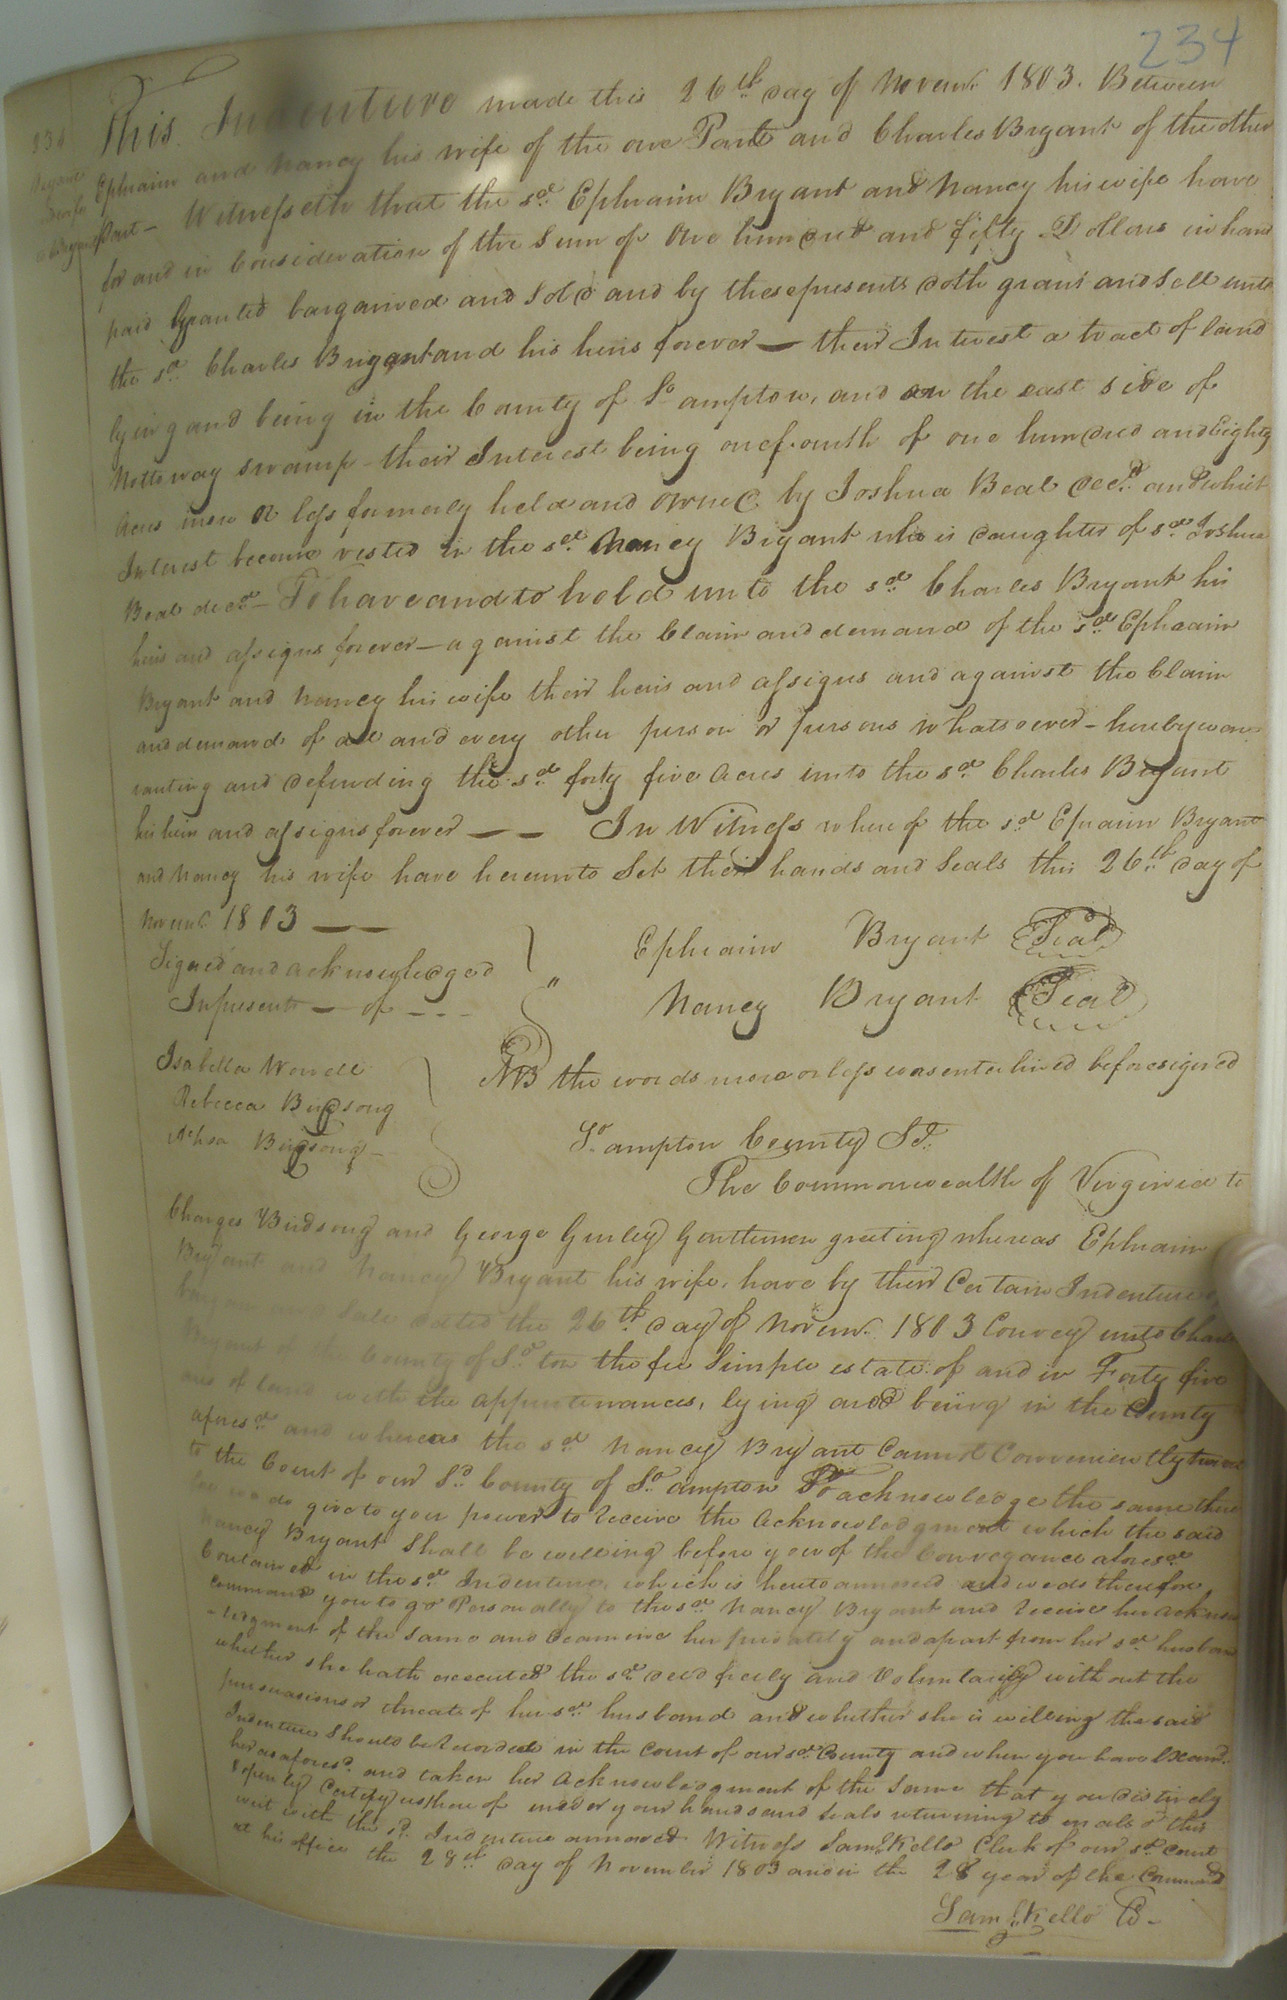 234
234
Bryant
& wife
to
Bryant
This Indenture made this 26th day of Novem.r 1803. Between
Ephraim and Nancy his wife of the one Part and Charles Bryant of the other
Part — Witnesseth that the sd. Ephraim Bryant and Nancy his wife have
for and in Consideration of the Sum of One hundred and fifty Dollars in hand
paid Granted bargained and Sold and by these presents doth grant and Sell unto
the sd. Charles Bryant and his heirs forever — their Interest a tract of land
lying and being in the County of So.ampton, and on the east side of
Nottoway swamp - their Interest being one fourth of one hundred and Eighty
Acres more or less formerly held and owned by Joshua Beal decd. and which
Interest became vested in the sd. Nancy Bryant who is daughter of sd. Joshua
Beal decd. — To have and to hold unto the sd. Charles Bryant his
heirs and assigns forever — against the Claim and demand of the sd. Ephraim
Bryant and Nancy his wife their heirs and assigns and against the Claim
and demand of all and every other person or persons whatsoever - hereby war-
ranting and defending the sd. forty five Acres unto the sd. Charles Bryant
his heirs and assigns forever — — In Witness whereof the sd. Ephraim Bryant
and Nancy his wife have hereunto Set their hands and Seals this 26th day of
Novem.r 1803 — —
Signed and acknowledged
In presents — of - - -
Ephraim Bryant Seal
Nancy Bryant Seal
Isabella Worrell
Rebecca Birdsong
Achsa Birdsong —
NB the words more or less was enterlined before signed
So.ampton County St.
The Commonwealth of Virginia to
Charges Birdsong and George Gurley Gentlemen greeting whereas Ephraim
Bryant and Nancy Bryant his wife, have by their Certain Indenture of
bargain and Sale dated the 26th day of Novem.r 1803 Convey unto Charles
Bryant of the County of So.ton the fee Simple estate of and in Forty five
acres of land with the appurtenances, lying and being in the County
aforesd. and whereas the sd. Nancy Bryant Cannot Conveniently travel
to the Court of our Sd. County of So.ampton To acknowledge the same there
fore we do give to you power to receive the Acknowledgment which the said
Nancy Bryant Shall be willing before you of the Conveyance aforesd.
Contained in the sd. Indenture, which is hereto annexed and we do therefore
command you to go Personally to the sd. Nancy Bryant and receive her Acknow
-ledgment of the Same and Examine her privately and apart from her sd. husband
whether she hath executed the sd. deed freely and Voluntarily with out the
persuasions or threats of her sd. husband and whether she is willing the said
Indenture Should be Recorded in the Court of our sd. County and when you have Examd.
her as aforesd. and taken her Acknowledgment of the Same that you distinctly
& openly Certify us thereof under your hands and Seals returning to us also this
writ with the sd. Indenture annexed Witness Saml. Kello Clerk of our sd. Court
at his office the 28th day of November 1803 and in the 28 year of the Commwd.
Saml. Kello Ck.